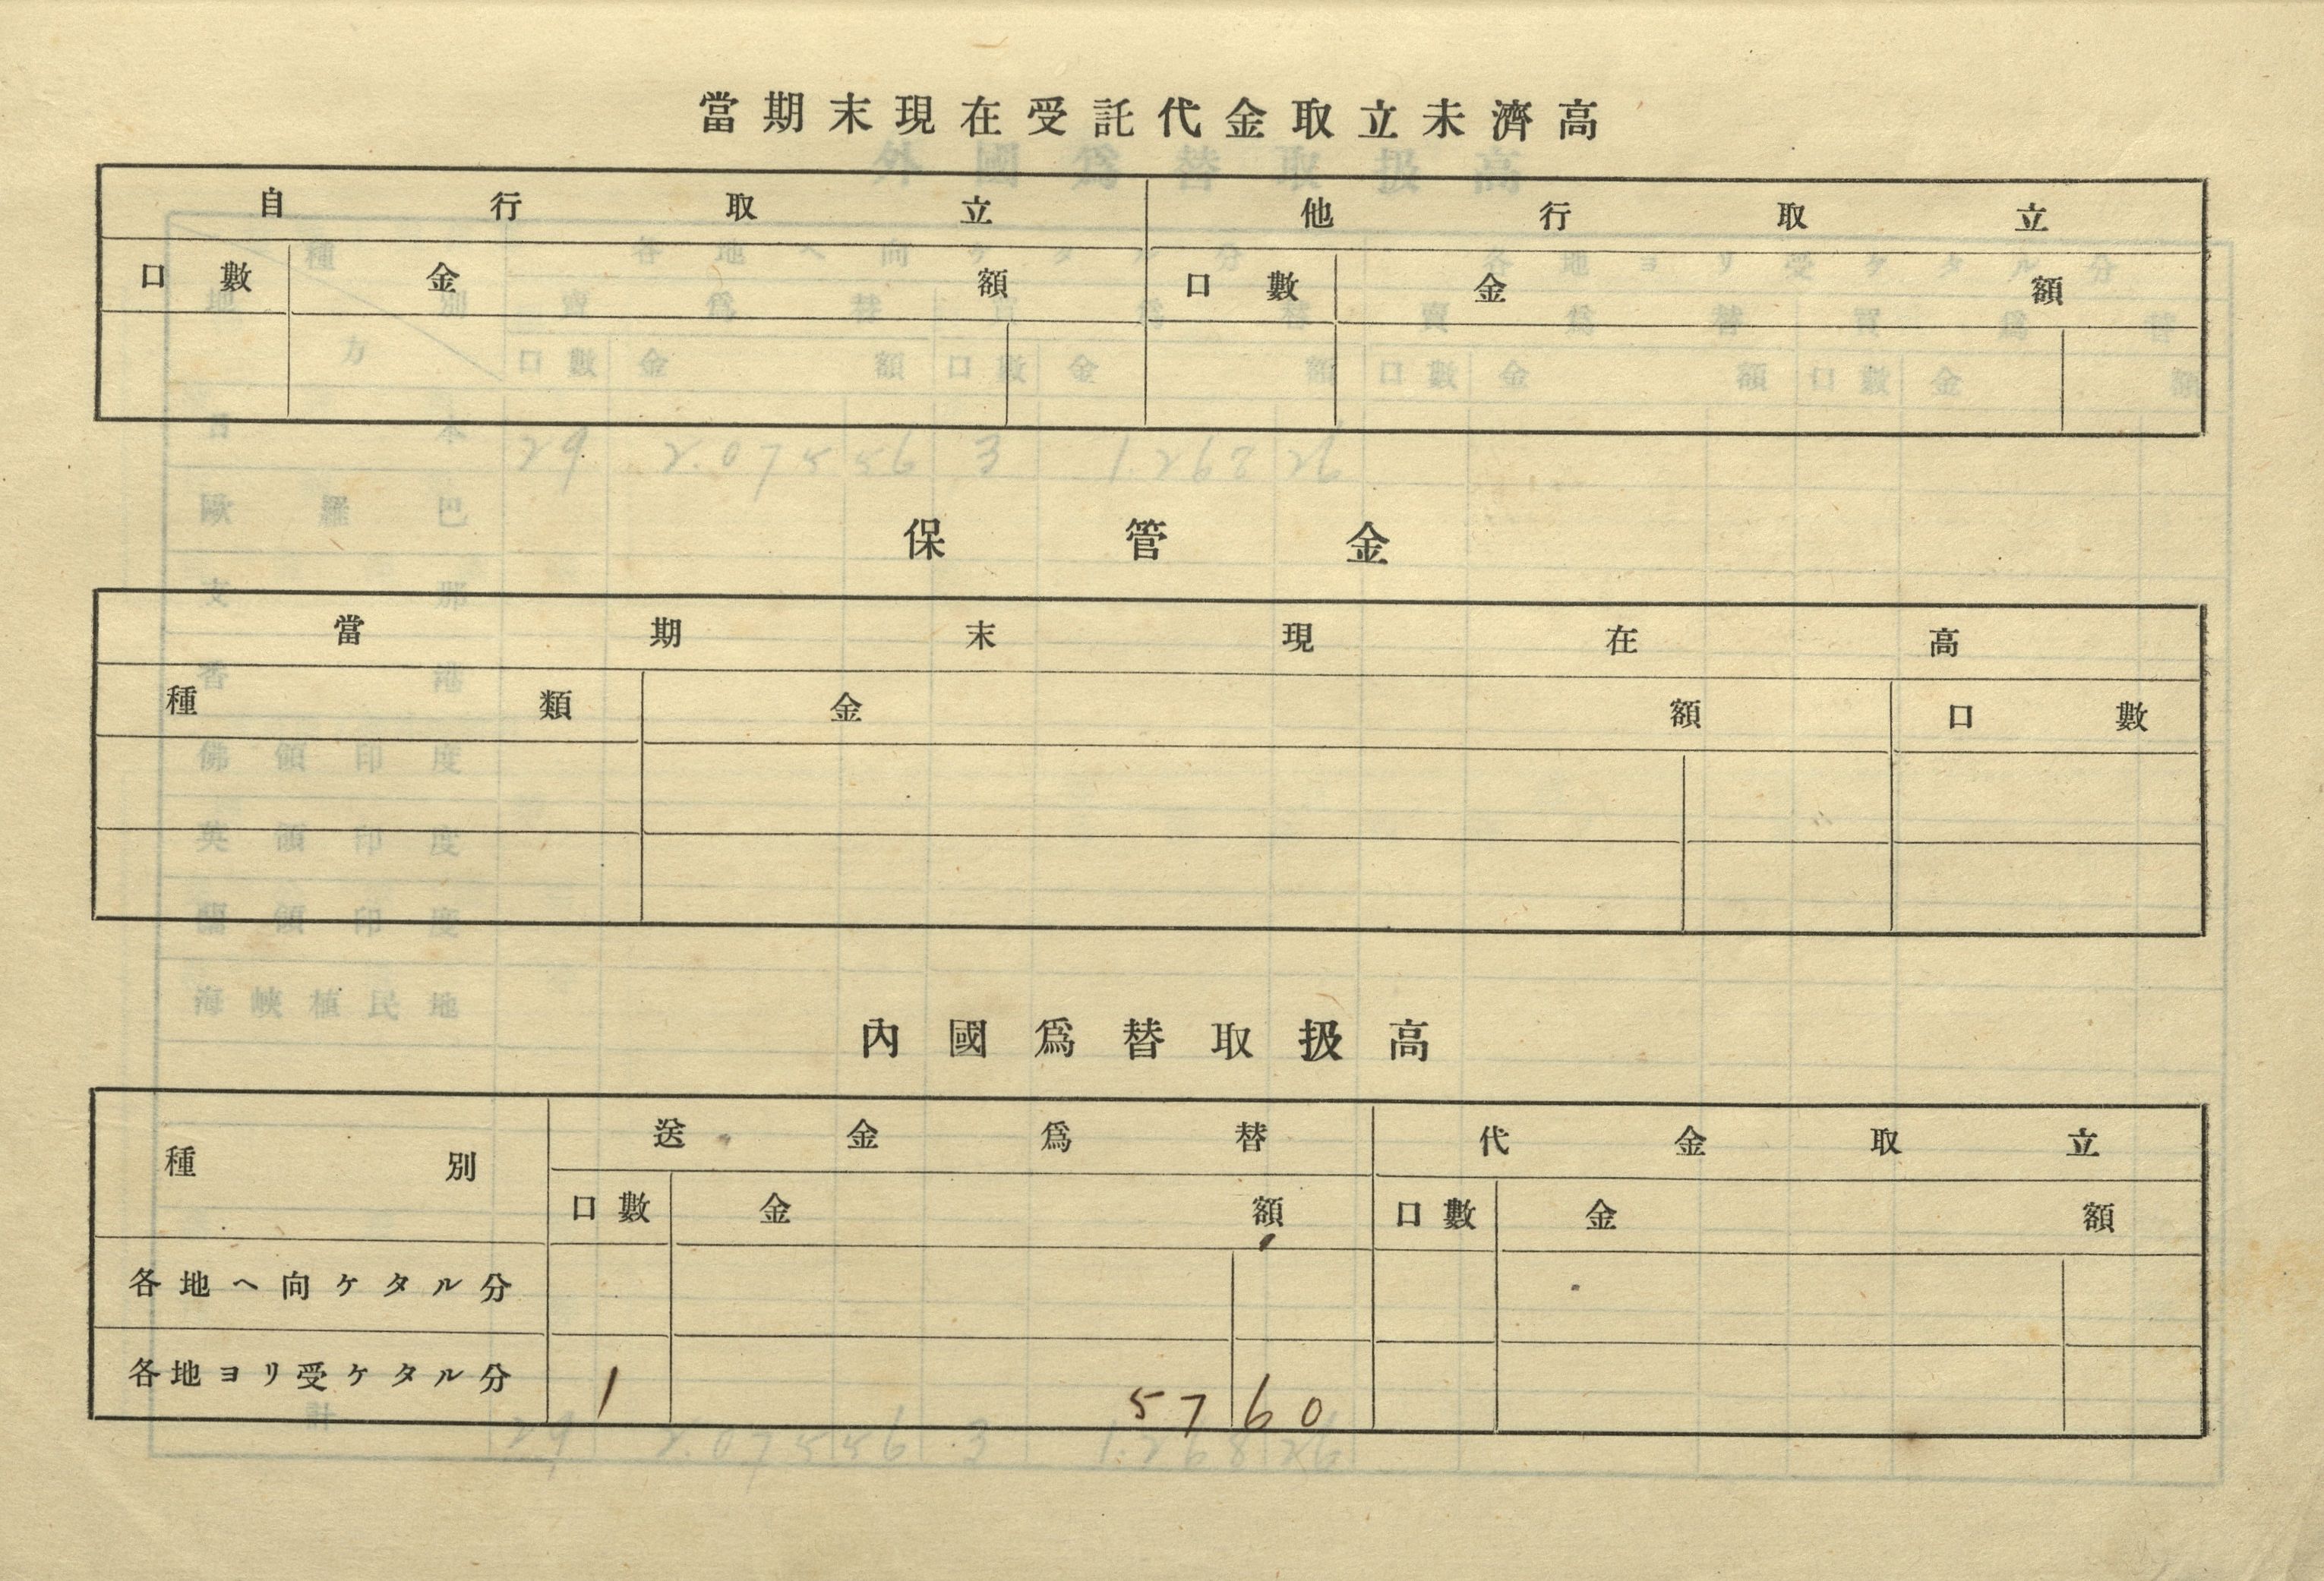 當期末現在受託代金取立未濟高
自行取立 他行取立
口數 金額 口數 金額
保管金
當期末現在高
種類 金額 口數
內國爲替取扱高
種別 送金爲替 代金取立
口數 金額 口數 金額
各地ヘ向ケタル分
各地ヨリ受ケタル分 1 57 60